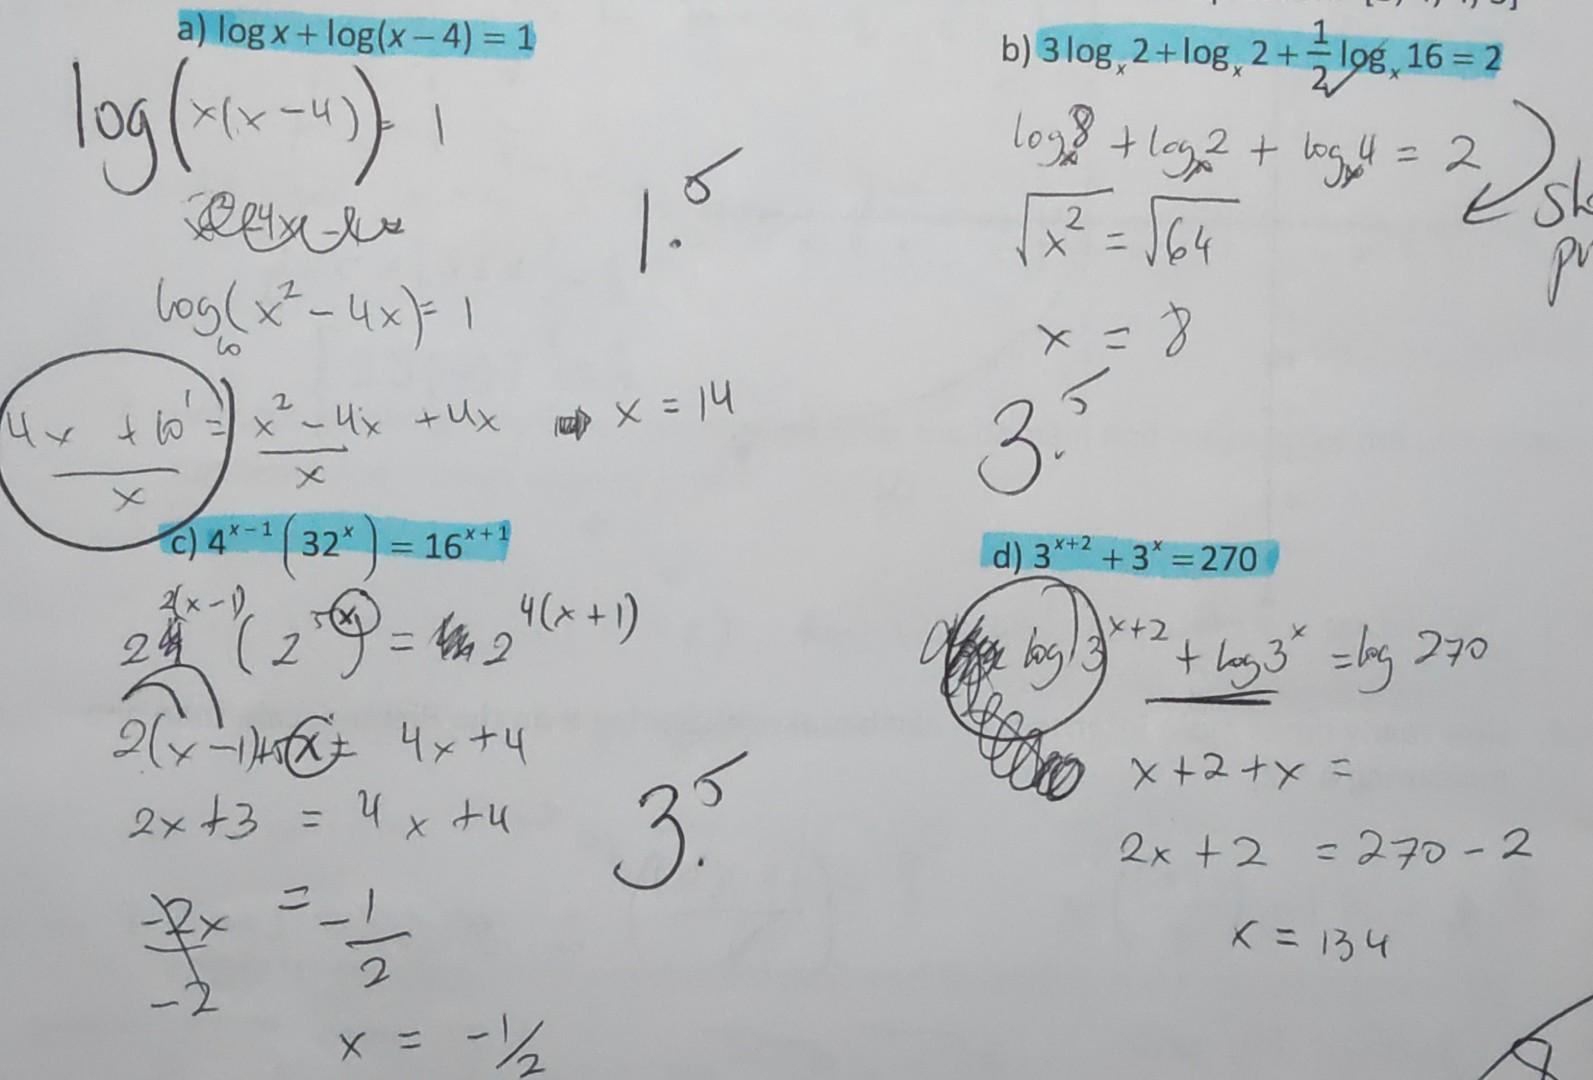 a) log x + log(x – 4) = 1
log(x(x – 4)) = 1
log₁₀(x² – 4x) = 1
4x + 10¹ = x² – 4x + 4x x = 14
x x
1.5
b) 3 logₓ 2 + logₓ 2 + 1/2 logₓ 16 = 2
logₓ 8 + logₓ 2 + logₓ 4 = 2
√x² = √64
x = 8
3.5
c) 4ˣ⁻¹ (32ˣ) = 16ˣ⁺¹
2²⁽ˣ⁻¹⁾ (2⁵ˣ) = 2⁴⁽ˣ⁺¹⁾
2(x – 1) + 5x = 4x + 4
2x + 3 = 4x + 4
-2x = -1
-2 2
x = -1/2
3.5
d) 3ˣ⁺² + 3ˣ = 270
log 3ˣ⁺² + log 3ˣ = log 270
x + 2 + x =
2x + 2 = 270 – 2
x = 134